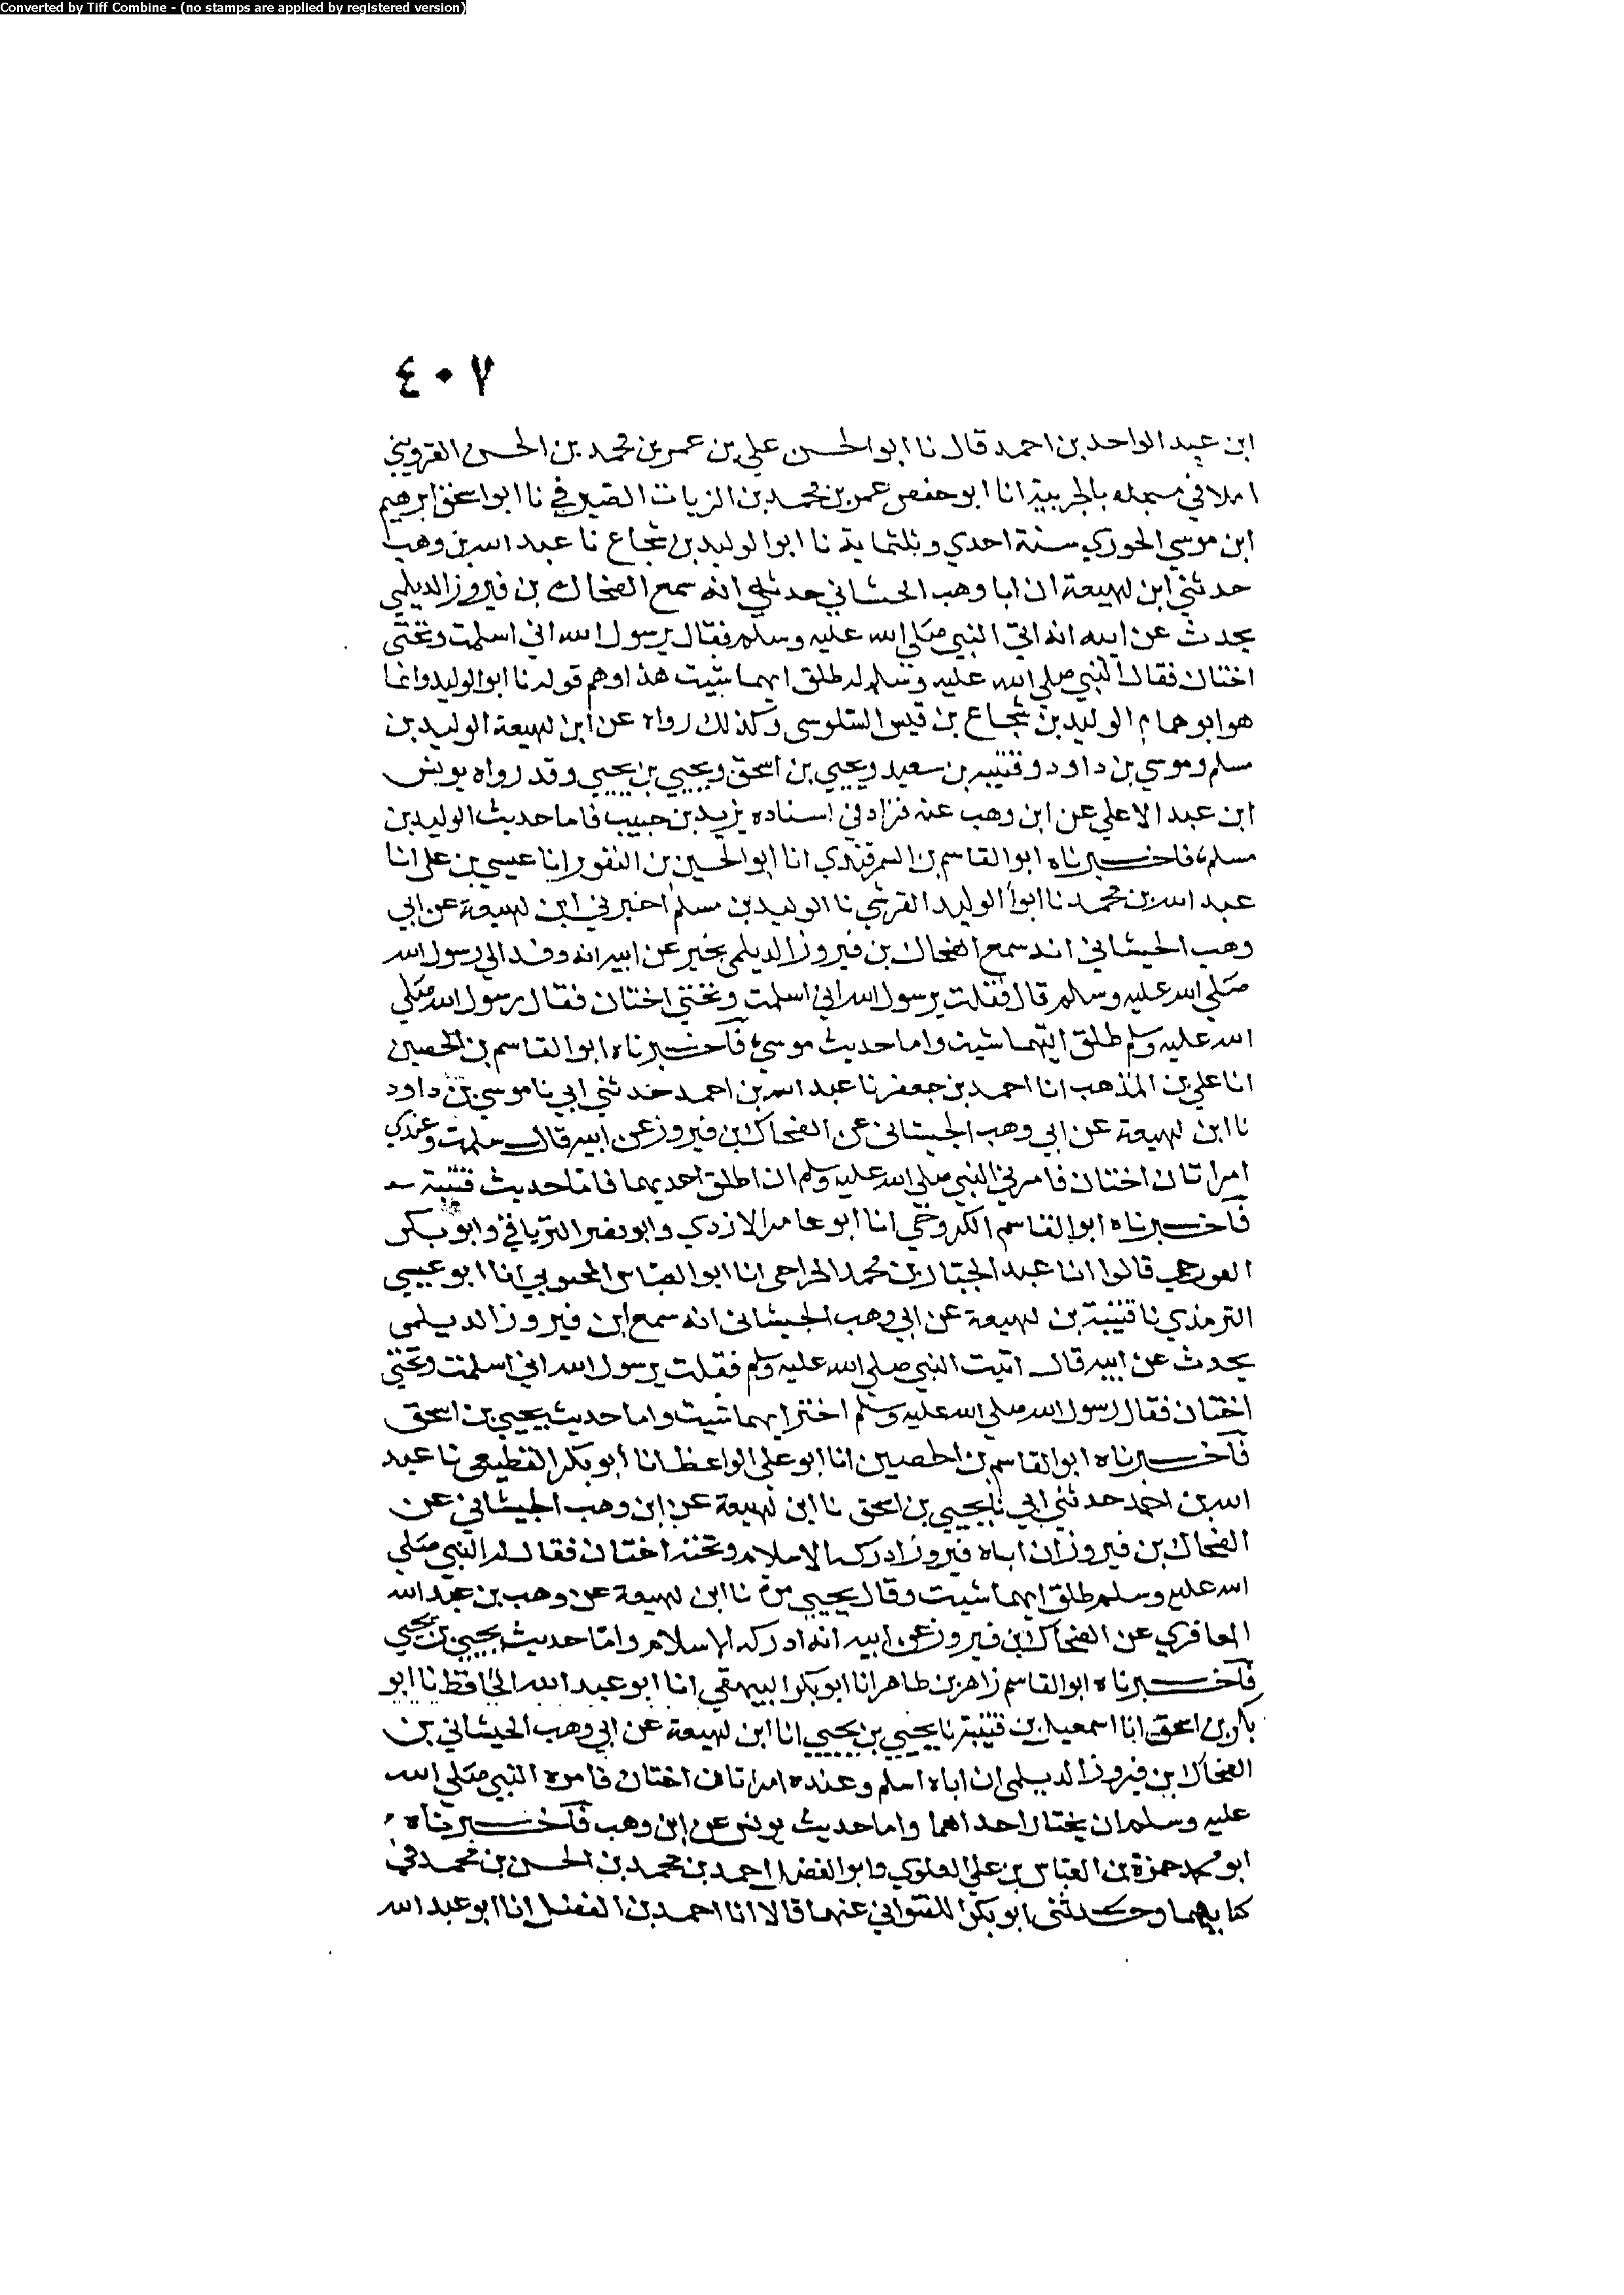 Converted by Tiff Combine - (no stamps are applied by registered version)
٤٠٧
ابن عبد الواحد بن احمد قال نا ابو الحسن علي بن عمر بن محمد بن الحسن القزويني
املا في مسجله بالحربية انا ابو حفص عمر بن محمد بن الزيات الصيرفي نا ابو اسحق ابرهيم
ابن موسي الحوزي سنة احدي وثلثماية نا ابو الوليد بن شجاع نا عبد الله بن وهب
حدثني ابن لهيعة ان ابا وهب الحشاني حدثه انه سمع الضحاك بن فيروز الديلمي
يحدث عن ابيه انه اتي النبي صلي الله عليه وسلم فقال يرسول الله اني اسلمت وتحتي
اختان فقال النبي صلي الله عليه وسلم له طلق ايهما شيت هذا وهم قوله نا ابو الوليد وانما
هو ابو همام الوليد بن شجاع بن قيس السلوسي وكذلك رواه عن ابن لهيعة الوليد بن
مسلم وموسي بن داود وقتيبه بن سعيد ويحيي بن اسحق ويحيي بن يحيي وقد رواه يونس
ابن عبد الاعلي عن ابن وهب عنه فزاد في اسناده يزيد بن حبيب فاما حديث الوليد بن
مسلم فاخبرناه ابو القاسم بن السمرقندي انا ابو الحسين بن النقور انا عيسي بن علي انا
عبد الله بن محمد نا ابو الوليد القرشي نا الوليد بن مسلم اخبرني ابن لهيعة عن ابي
وهب الحيشاني انه سمع الضحاك بن فيروز الديلمي يخبر عن ابيه انه وفد الي رسول الله
صلي الله عليه وسلم قال فقلت يرسول الله اني اسلمت وتحتي اختان فقال رسول الله صلي
الله عليه وسلم طلق ايتهما شيت واما حديث موسي فاخبرناه ابو القاسم بن الحصين
انا علي بن المذهب انا احمد بن جعفر نا عبد الله بن احمد حدثني ابي نا موسي بن داود
نا ابن لهيعة عن ابي وهب الجيشاني عن الضحاك بن فيروز عن ابيه قال سلمت وعندي
امراتان اختان فامرني النبي صلي الله عليه وسلم ان اطلق احديهما فاما حديث قتيبة
فاخبرناه ابو القاسم الكروخي انا ابو عامر الازدي وابو نصر الترياقي وابو بكر
الغورجي قالوا انا عبد الجبار بن محمد الجراحي انا ابو العباس المحبوبي انا ابو عيسي
الترمذي نا قتيبة بن لهيعة عن ابي وهب الجيشاني انه سمع ابن فيروز الديلمي
يحدث عن ابيه قال اتيت النبي صلي الله عليه وسلم فقلت يرسول الله اني اسلمت وتحتي
اختان فقال رسول الله صلي الله عليه وسلم اختر ايهما شيت واما حديث يحيي بن اسحق
فاخبرناه ابو القاسم بن الحصين انا ابو علي الواعظ انا أبو بكر القطيعي نا عبد
الله بن احمد حدثني ابي نا يحيي بن اسحق نا ابن لهيعة عن ابن وهب الجيشاني عن
الضحاك بن فيروز ان اباه فيروز ادركه الاسلام وتحته اختان فقال له النبي صلي
الله عليه وسلم طلق ايهما شيت وقال يحيي مرة نا ابن لهيعة عن وهب بن عبد الله
المعافري عن الضحاك بن فيروز عن ابيه انه ادركه الاسلام واما حديث يحيي بن يحيي
فاخبرناه ابو القاسم زاهر بن طاهر انا ابو بكر البيهقي انا ابو عبد الله الحافظ نا ابو
بكر بن اسحق انا اسمعيل بن قتيبة نا يحيي بن يحيي انا ابن لهيعة عن ابي وهب الحيشاني بن
الضحاك بن فيروز الديلمي ان اباه اسلم وعنده امراتان اختان فامره النبي صلي الله
عليه وسلم ان يختار احداهما واما حديث يونس عن ابن وهب فاخبرناه
ابو محمد حمزة بن العباس بن علي العلوي وابو الفضل احمد بن محمد بن الحسن بن محمد في
كتابيهما وحدثني ابو بكر اللفتواني عنهما قالا انا احمد بن الفضل انا ابو عبد الله